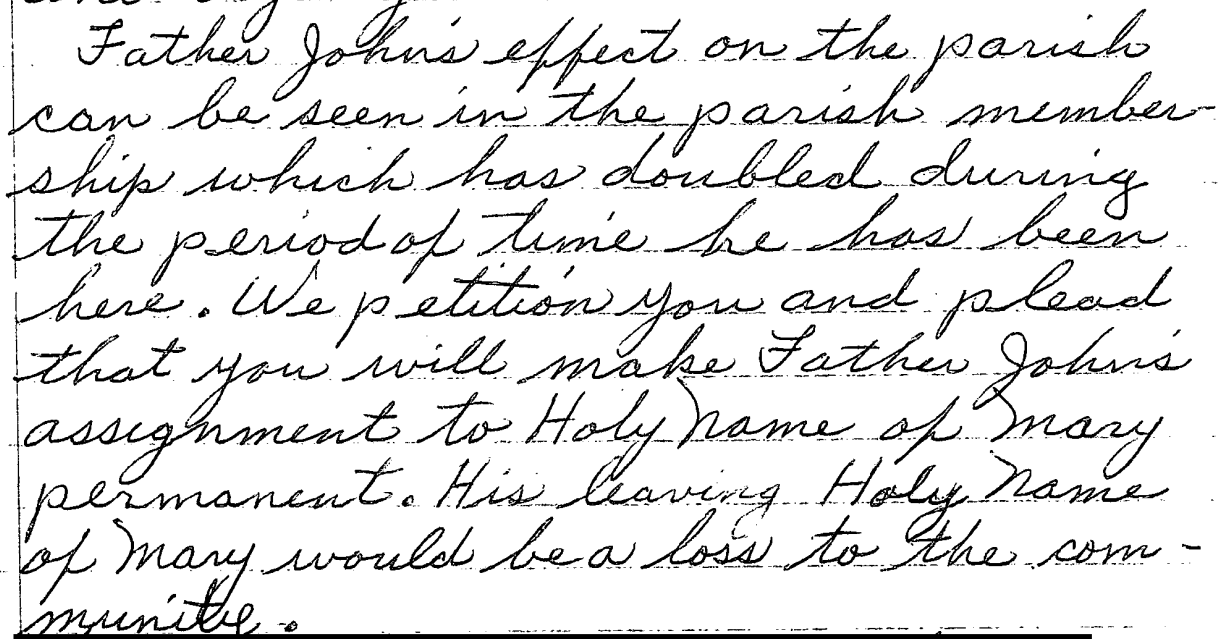 Father John's effect on the parish
can be seen in the parish member-
ship which has doubled during
the period of time he has been
here. We petition you and plead
that you will make Father John's
assignment to Holy Name of Mary
permanent. His leaving Holy Name
of Mary would be a loss to the com-
munity.